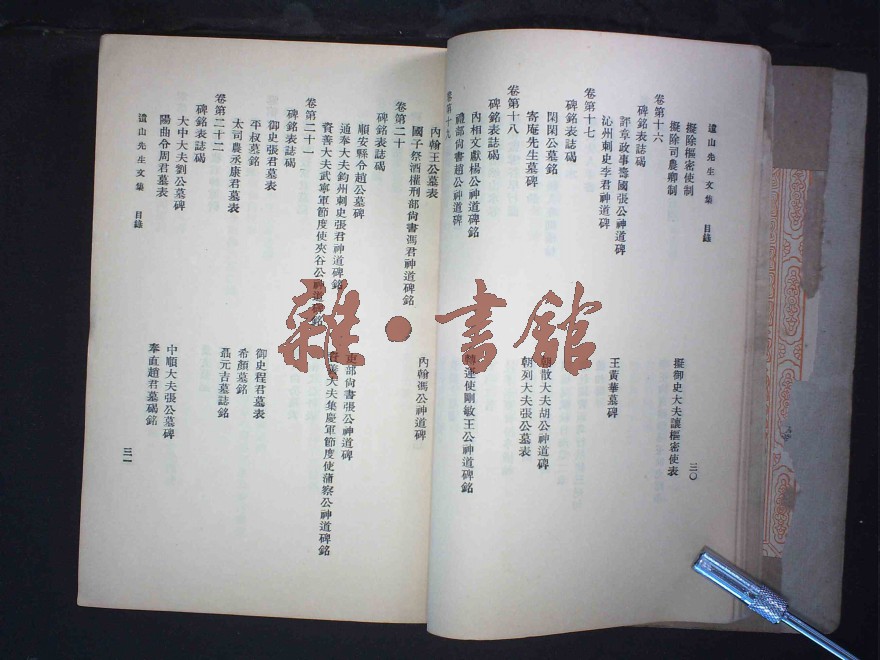 遺山先生文集 目錄 三〇
擬除樞密使制 擬御史大夫讓樞密使表
擬除司農卿制
卷第十六
碑銘表誌碣
評章政事壽國張公神道碑 王黃華墓碑
沁州刺史李君神道碑
卷第十七
碑銘表誌碣
閑閑公墓銘 朝散大夫胡公神道碑
寄庵先生墓碑 朝列大夫張公墓表
卷第十八
碑銘表誌碣
內相文獻楊公神道碑銘 轉運使剛敏王公神道碑銘
禮部尙書趙公神道碑
卷第十九
內翰王公墓表 內翰馮公神道碑
國子祭酒權刑部尙書馮君神道碑銘
卷第二十
碑銘表誌碣
順安縣令趙公墓碑 吏部尙書張公神道碑
通奉大夫鈞州刺史張君神道碑銘 資善大夫集慶軍節度使蒲察公神道碑銘
資善大夫武寧軍節度使夾谷公神道碑銘
卷第二十一
碑銘表誌碣
御史張君墓表 御史程君墓表
平叔墓銘 希顏墓銘
太司農丞康君墓表 聶元吉墓誌銘
卷第二十二
碑銘表誌碣
大中大夫劉公墓碑 中順大夫張公墓碑
陽曲令周君墓表 奉直趙君墓碣銘
遺山先生文集 目錄 三一
雜·書館